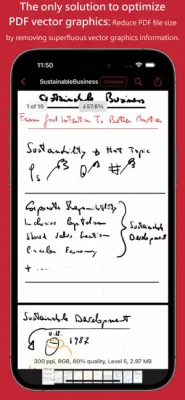 The only solution to optimize
PDF vector graphics: Reduce PDF file size
by removing superfluous vector graphics information.
11:50
SustainableBusiness
Compare
1 of 10
↓57.6%
Sustainable Business
From good Intention To Better Practices
Sustainability → Hot Topic
Corporate Responsibility
Inclusive Capitalism
Circular Economy
+ ...
Sustainable
Development
Sustainable Development
1987
300 ppi, RGB, 80% quality, Level 5, 2.97 MB